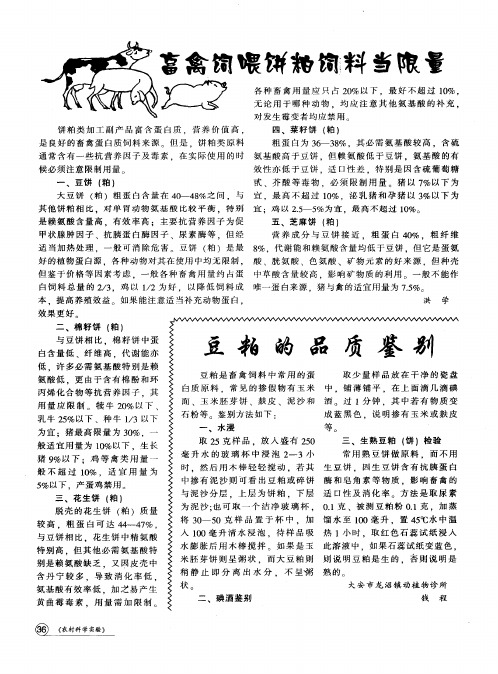 畜禽饲喂饼粕饲料当限量
饼粕类加工副产品富含蛋白质，营养价值高，
是良好的畜禽蛋白质饲料来源。但是，饼粕类原料
通常含有一些抗营养因子及毒素，在实际使用的时
候必须注意限制用量。
一、豆饼（粕）
大豆饼（粕）粗蛋白含量在 40—48%之间，与
其他饼粕相比，对单胃动物氨基酸比较平衡，特别
是赖氨酸含量高，有效率高；主要抗营养因子为促
甲状腺肿因子、抗胰蛋白酶因子、尿素酶等，但经
适当加热处理，一般可消除危害。豆饼（粕）是最
好的植物蛋白源，各种动物对其在使用中均无限制，
但鉴于价格等因素考虑，一般各种畜禽用量约占蛋
白饲料总量的 2/3，鸡以 1/2 为好，以降低饲料成
本，提高养殖效益。如果能注意适当补充动物蛋白，
效果更好。
二、棉籽饼（粕）
与豆饼相比，棉籽饼中蛋
白含量低、纤维高，代谢能亦
低，许多必需氨基酸特别是赖
氨酸低，更由于含有棉酚和环
丙烯化合物等抗营养因子，其
用量应限制。犊牛 20%以下、
乳牛 25%以下、种牛 1/3 以下
为宜；猪最高限量为 30%，一
般适宜用量为 10%以下，生长
猪 9%以下；鸡等禽类用量一
般不超过 10%，适宜用量为
5%以下，产蛋鸡禁用。
三、花生饼（粕）
脱壳的花生饼（粕）质量
较高，粗蛋白可达 44—47%，
与豆饼相比，花生饼中精氨酸
特别高，但其他必需氨基酸特
别是赖氨酸缺乏，又因皮壳中
含丹宁较多，导致消化率低，
氨基酸有效率低，加之易产生
黄曲霉毒素，用量需加限制。
各种畜禽用量应只占 20%以下，最好不超过 10%，
无论用于哪种动物，均应注意其他氨基酸的补充，
对发生霉变者均应禁用。
四、菜籽饼（粕）
粗蛋白为 36—38%，其必需氨基酸较高，含硫
氨基酸高于豆饼，但赖氨酸低于豆饼，氨基酸的有
效性亦低于豆饼，适口性差，特别是因含硫葡萄糖
甙、芥酸等毒物，必须限制用量。猪以 7%以下为
宜，最高不超过 10%，泌乳猪和孕猪以 3%以下为
宜；鸡以 2.5—5%为宜，最高不超过 10%。
五、芝麻饼（粕）
营养成分与豆饼接近，粗蛋白 40%，粗纤维
8%，代谢能和赖氨酸含量均低于豆饼，但它是蛋氨
酸、胱氨酸、色氨酸、矿物元素的好来源，但种壳
中草酸含量较高，影响矿物质的利用。一般不能作
唯一蛋白来源，猪与禽的适宜用量为 7.5%。
洪 学
豆粕的品质鉴别
豆粕是畜禽饲料中常用的蛋
白质原料，常见的掺假物有玉米
面、玉米胚芽饼、麸皮、泥沙和
石粉等。鉴别方法如下：
一、水浸
取 25 克样品，放入盛有 250
毫升水的玻璃杯中浸泡 2—3 小
时，然后用木棒轻轻搅动，若其
中掺有泥沙则可看出豆粕或碎饼
与泥沙分层，上层为饼粕，下层
为泥沙;也可取一个洁净玻璃杯，
将 30—50 克样品置于杯中，加
入 100 毫升清水浸泡，待样品吸
水膨胀后用木棒搅拌。如果是玉
米胚芽饼则呈粥状，而大豆粕则
稍静止即分离出水分，不呈粥
状。
二、碘酒鉴别
取少量样品放在干净的瓷盘
中，铺薄铺平，在上面滴几滴碘
酒。过 1 分钟，其中若有物质变
成蓝黑色，说明掺有玉米或麸皮
等。
三、生熟豆粕（饼）检验
常用熟豆饼做原料，而不用
生豆饼，因生豆饼含有抗胰蛋白
酶和皂角素等物质，影响畜禽的
适口性及消化率。方法是取尿素
0.1 克、被测豆粕粉 0.1 克，加蒸
馏水至 100 毫升，置 45℃水中温
热 1 小时，取红色石蕊试纸浸入
此溶液中，如果石蕊试纸变蓝色，
则说明豆粕是生的，否则说明是
熟的。
大安市龙沼镇动植物诊所
钱 程
36 《农村科学实验》